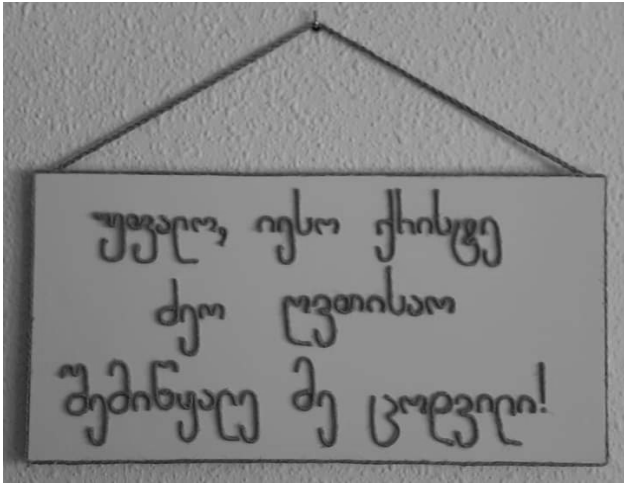 უფალო, იესო ქრისტე
ძეო ღვთისაო
შემიწყალე მე ცოდვილი!